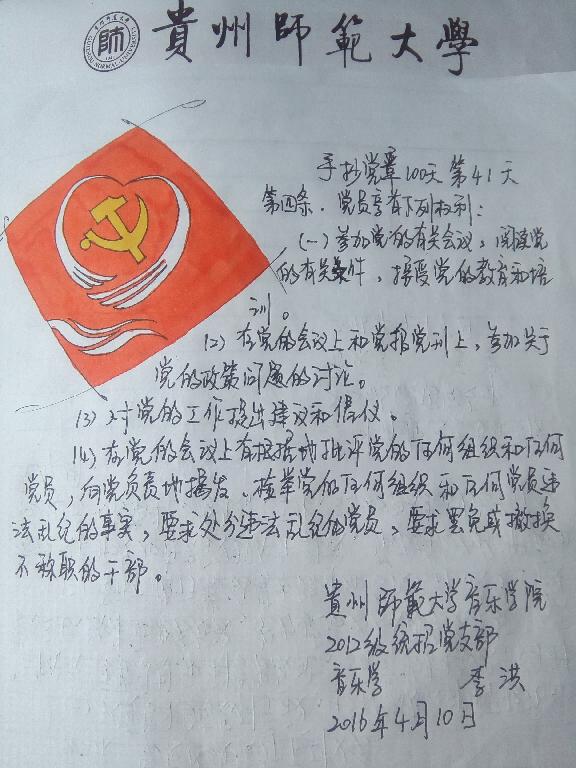 貴州師範大學
師
手抄党章100天第41天
第四条.党员享有下列权利:
(一)参加党的有关会议,阅读党
的有关条件,接受党的教育和培
训。
(2)在党的会议上和党报党刊上,参加关于
党的政策问题的讨论。
(3)对党的工作提出建议和倡仪。
(4)在党的会议上有根据地批评党的任何组织和任何
党员,向党负责地揭发、检举党的任何组织和任何党员违
法乱纪的事实,要求处分违法乱纪的党员,要求罢免或撤换
不称职的干部。
貴州師範大学音乐学院
2012级统招党支部
音乐学 李洪
2016年4月10日